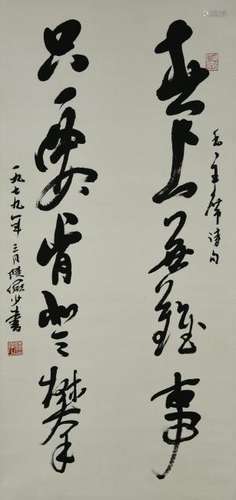 世上无难事
毛主席诗句
只要肯登攀
一九七九年三月陆俨少书